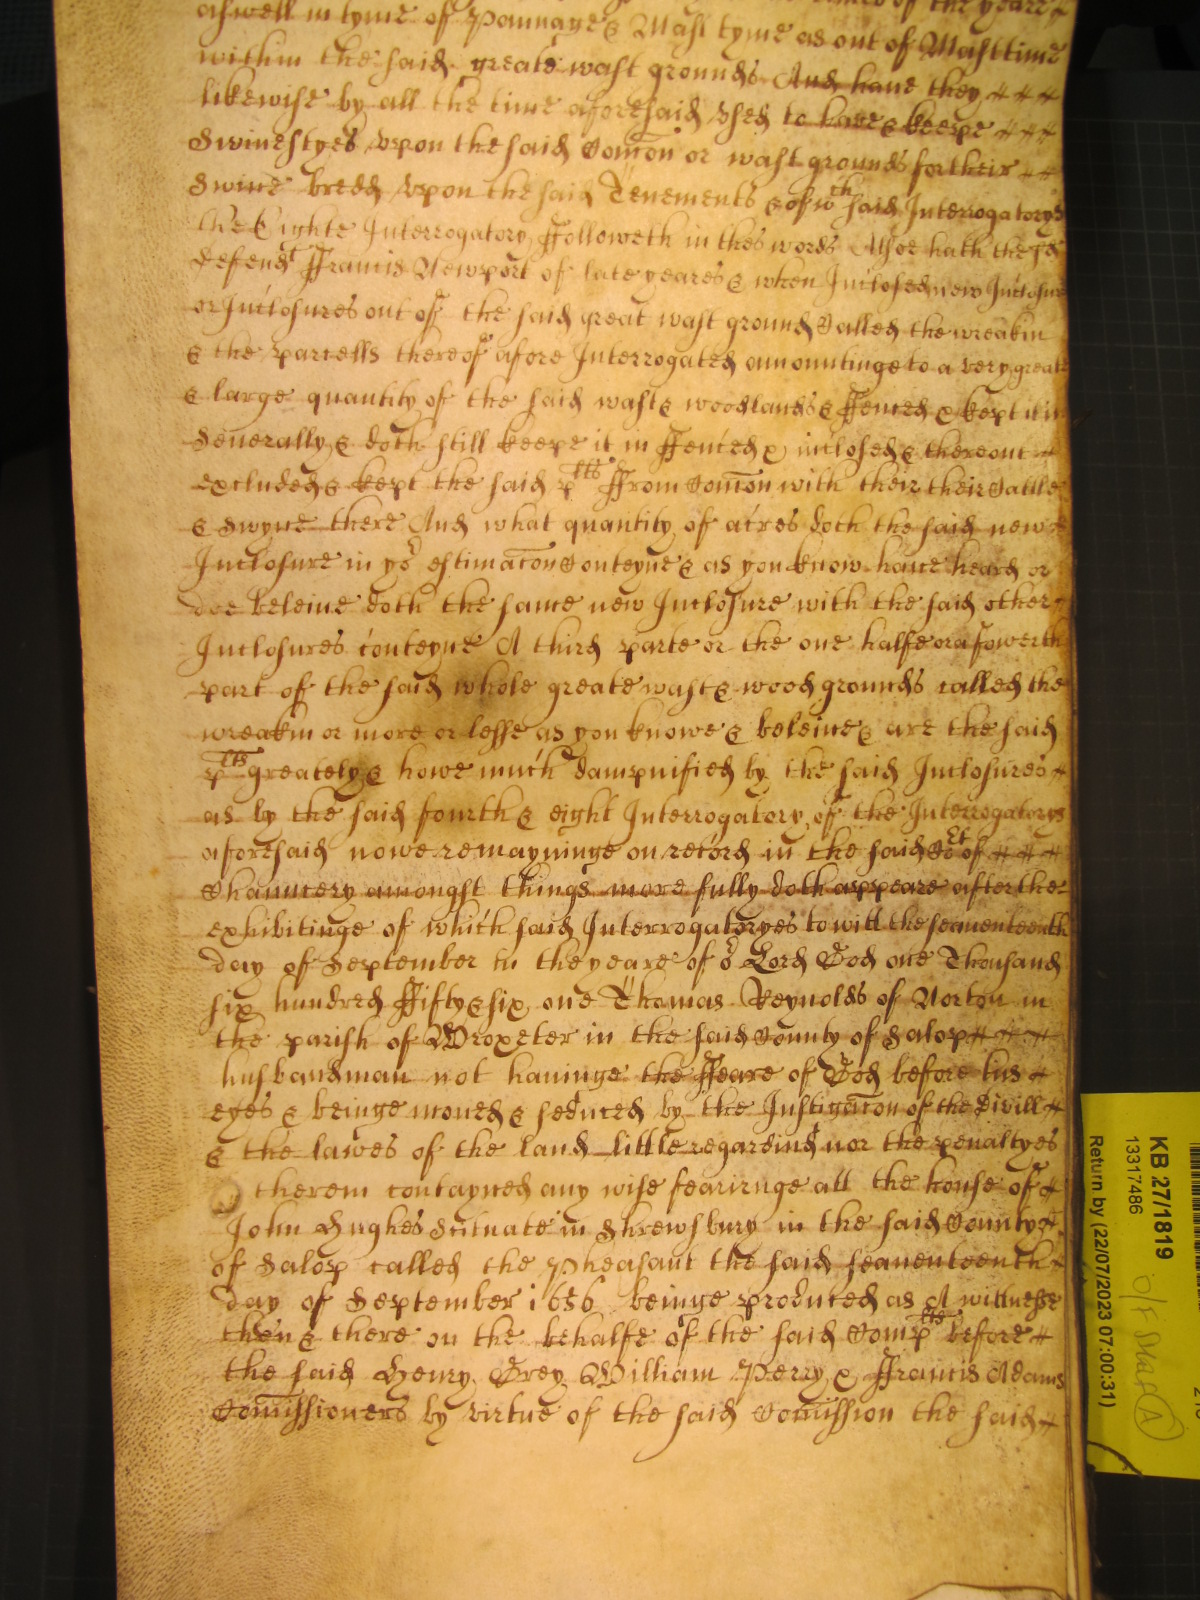 of the yeare
aswell in tyme of Pannage & Mast tyme as out of Masttime
within the said greate wast grounds And haue they
likewise by all the time aforesaid vsed to haue & keepe
Swinestyes vpon the said Com̄on or wast grounds for their
Swine bredd vpon the said Tenements & of wch said Interrogatorys
the Eighte Interrogatory ffolloweth in thes words Alsoe hath the sd
Defendt ffrancis Newport of late yeares & when Inclosed new Inclosure
or Inclosures out of the said great wast ground Called the wreakin
& the parcells thereof afore Interrogated amountinge to a very greate
& large quantity of the said wast & woodlands & ffenced & kept it in
Seuerally & doth still keepe it in ffenced & inclosed & thereout
excluded & kept the said plts ffrom Com̄on with their their Cattle
& Swyne there And what quantity of acres doth the said new
Inclosure in yor estimac̄on Conteyne & as you know haue heard or
doe beleiue doth the same new Inclosure with the said other
Inclosures conteyne A third parte or the one halfe or a fowerth
part of the said whole greate wast & wood grounds called the
wreakin or more or lesse as you knowe & beleiue & are the said
plts greately & howe much dampnified by the said Inclosures
as by the said fourth & eight Interrogatory of the Interrogatorys
aforesaid nowe remayninge on record in the said Cort of
Chauncery amongst things more fully doth appeare after the
exhibitinge of which said Interrogatoryes to witt the seauenteenth
day of September in the yeare of or Lord God one Thousand
six hundred ffifty & six one Thomas Reynolds of Norton in
the parish of Wroxeter in the said County of Salop
husbandman not hauinge the ffeare of God before his
eyes & beinge moued & seduced by the Instigac̄on of the Divill
& the lawes of the land little regardind nor the penaltyes
therein contayned any wise fearinge att the house of
John Hughes Scituate in Shrewsbury in the said County
of Salop called the Pheasant the said seauenteenth
day of September 1656 beinge produced as A wittnesse
then & there on the behalfe of the said Complts before
the said Henry Grey William Perry & ffrancis Adams
Com̄issioners by virtue of the said Com̄ission the said
KB 27/1819
13317486
Return by (22/07/2023 07:00:31)